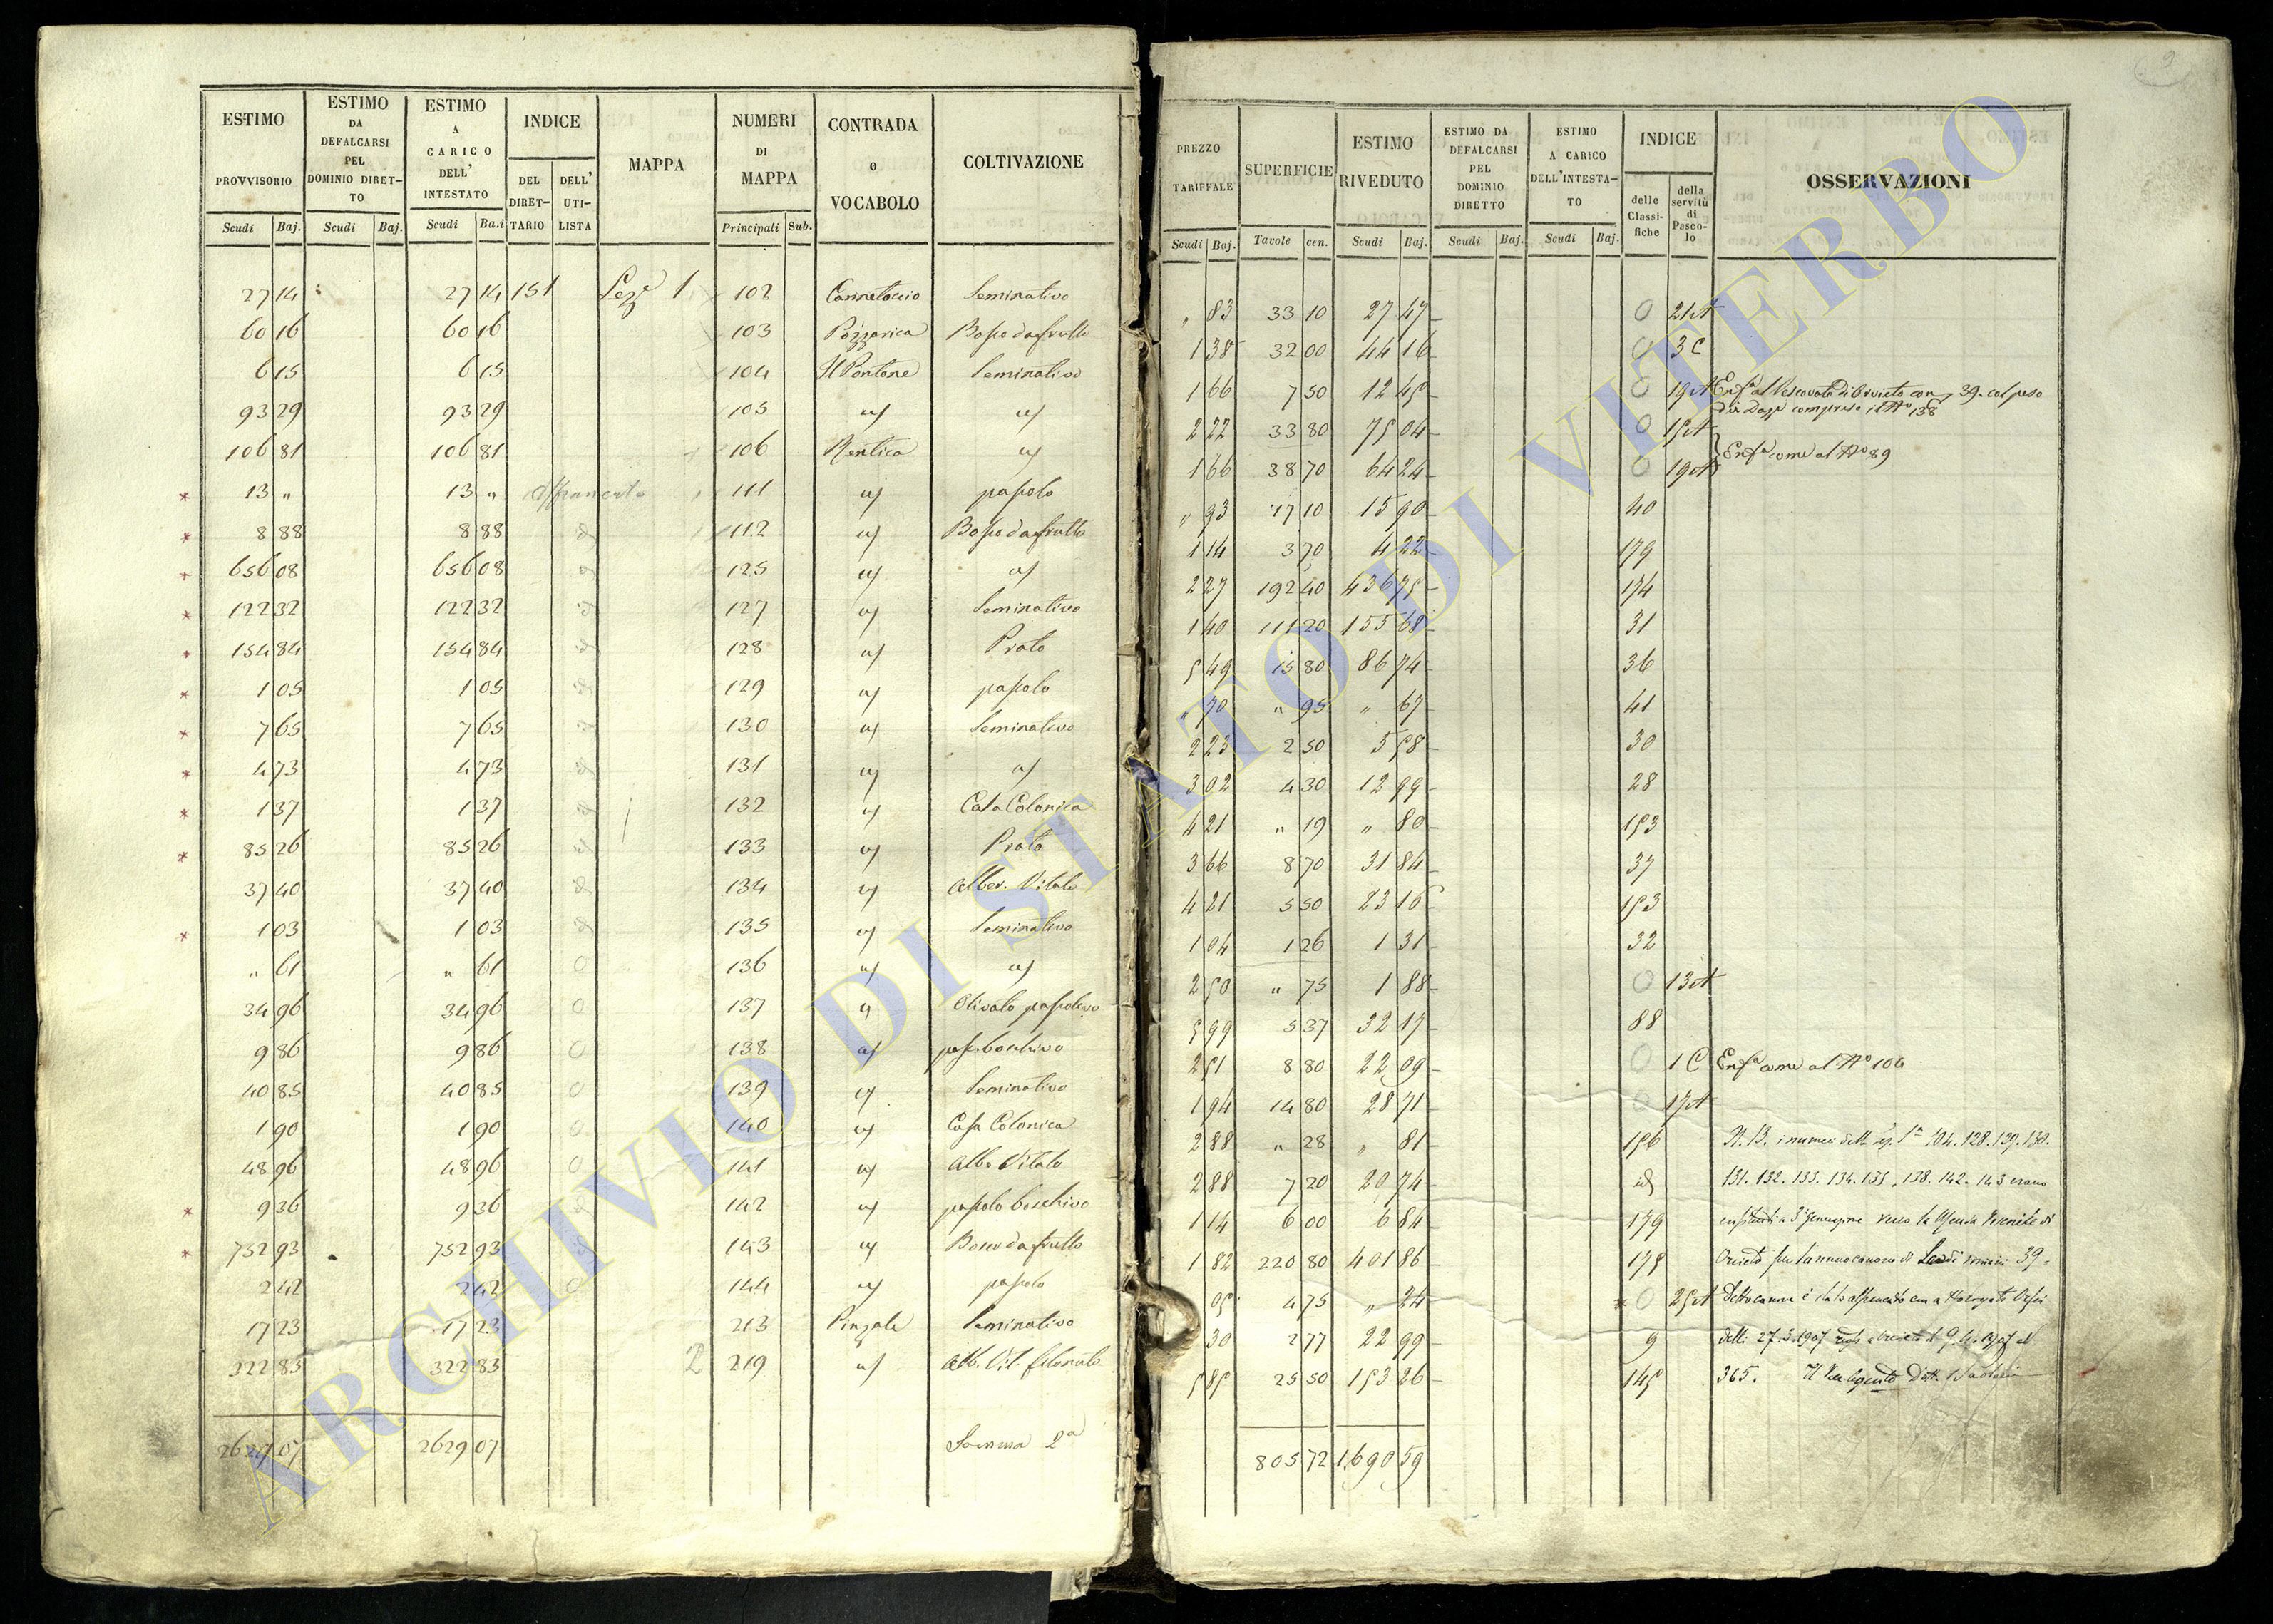 ESTIMO PROVVISORIO
ESTIMO DA DEFALCARSI PEL DOMINIO DIRET-TO
ESTIMO A CARICO DELL' INTESTATO
INDICE
DEL DIRET-TARIO
DELL' UTI-LISTA
MAPPA
NUMERI DI MAPPA
CONTRADA o VOCABOLO
COLTIVAZIONE
Scudi Baj. Scudi Baj. Scudi Ba.i Principali Sub.
27 14 27 14 151 Sez.e 1 102 Cannetaccio Seminativo
60 16 60 16 103 Pozzarica Bosco da frutto
6 15 6 15 104 Il Pontone Seminativo
93 29 93 29 105 id id
106 81 106 81 106 id
13 " 13 " 111 id pascolo
8 88 8 88 112 id Bosco da frutto
656 08 656 08 125 id id
122 32 122 32 127 id Seminativo
154 84 154 84 128 id Prato
1 05 1 05 129 id pascolo
7 65 7 65 130 id Seminativo
4 73 4 73 131 id id
1 37 1 37 132 id Casa Colonica
85 26 85 26 133 id Prato
37 40 37 40 134 id Alber. Vitato
1 03 1 03 135 id Seminativo
" 61 " 61 0 136 id id
34 96 34 96 0 137 id Olivato pascolivo
9 86 9 86 0 138 id pas. boschivo
40 85 40 85 0 139 id Seminativo
1 90 1 90 0 140 id Casa Colonica
48 96 48 96 0 141 id Alb. Vitato
9 36 9 36 142 id pascolo boschivo
752 93 752 93 143 id Bosco da frutto
2 42 2 42 0 144 id pascolo
17 23 17 23 213 Pinzale Seminativo
322 83 322 83 2 219 id Alb. Vit.
2629 07 2629 07 Somma 2a
9
PREZZO TARIFFALE
SUPERFICIE
ESTIMO RIVEDUTO
ESTIMO DA DEFALCARSI PEL DOMINIO DIRETTO
ESTIMO A CARICO DELL'INTESTA-TO
INDICE
delle Classi-fiche
della servitù di Pasco-lo
OSSERVAZIONI
Scudi Baj. Tavole cen. Scudi Baj. Scudi Baj. Scudi Baj.
" 83 33 10 27 47 0 21A
1 38 32 00 44 16 0 3C
1 66 7 50 12 45 0 19A Enf.a al Vescovato di Orvieto con 39. col peso
dei Dazj compreso il No 138
2 22 33 80 75 04 0 15A
Enf.a come al No 89
1 66 38 70 64 24 0 19A
" 93 17 10 15 90 40
1 14 3 70 4 22 179
2 27 192 40 436 75 174
1 40 111 20 155 68 31
5 49 15 80 86 74 36
" 70 " 95 " 67 41
2 23 2 50 5 58 30
3 02 4 30 12 99 28
4 21 " 19 " 80 153
3 66 8 70 31 84 37
4 21 5 50 23 16 153
1 04 1 26 1 31 32
2 50 " 75 1 88 0 13A
5 99 5 37 32 17 88
2 51 8 80 22 09 0 1C Enf.a come al No 104
1 94 14 80 28 71 0 17A
2 88 " 28 " 81 156 N. B. i numeri della sez. 1a 104. 128. 129. 130.
2 88 7 20 20 74 id 131. 132. 133. 134. 135. 138. 142. 143 erano
1 14 6 00 6 84 179 enfiteutici a 3a generazione verso la Mensa Vescovile di
1 82 220 80 401 86 178 Orvieto per l'annuo canone di Scudi romani 39.
" 05 4 75 " 24 0 25A Detto canone è stato affrancato con a rogito
30 2 77 22 99 9 delli 27.3.1907 Orvieto il 9.4.1907 al
5 85 25 50 153 26 145 365. Il
805 72 1690 59
ARCHIVIO DI STATO DI VITERBO